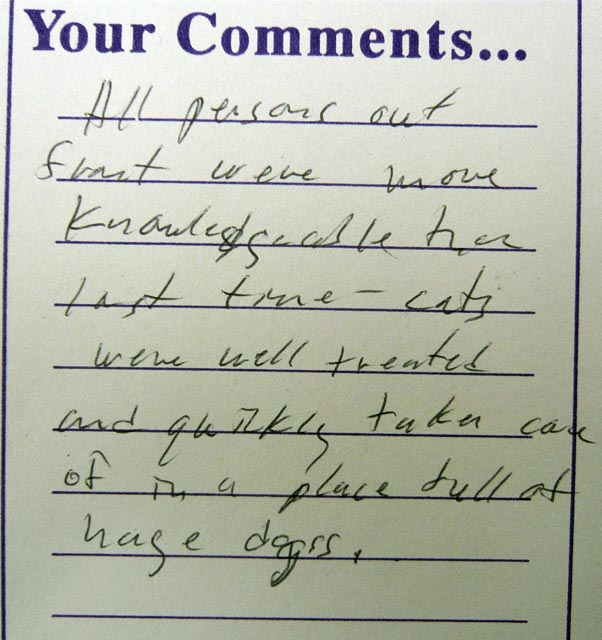 Your Comments...
All persons out
front were more
Knowledgeable than
last time - cats
were well treated
and quickly taken care
of in a place full of
huge dogs.